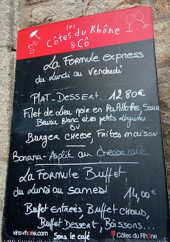 les
Côtes du Rhône
& Cô
La Formule express
du Lundi au Vendredi
Plat-Dessert. 12.80€
Filet de lieu noir en Sauce
Beurre Blanc et ses petits légumes
ou
Burger cheese, Frites maison
Banana-Split ou Cheese cake
La Formule Buffet
du Lundi au samedi
14,00€
Buffet Entrées Buffet chaud,
Buffet Dessert, Boissons...
Sous le café
vins-rhone.com
Côtes du Rhône